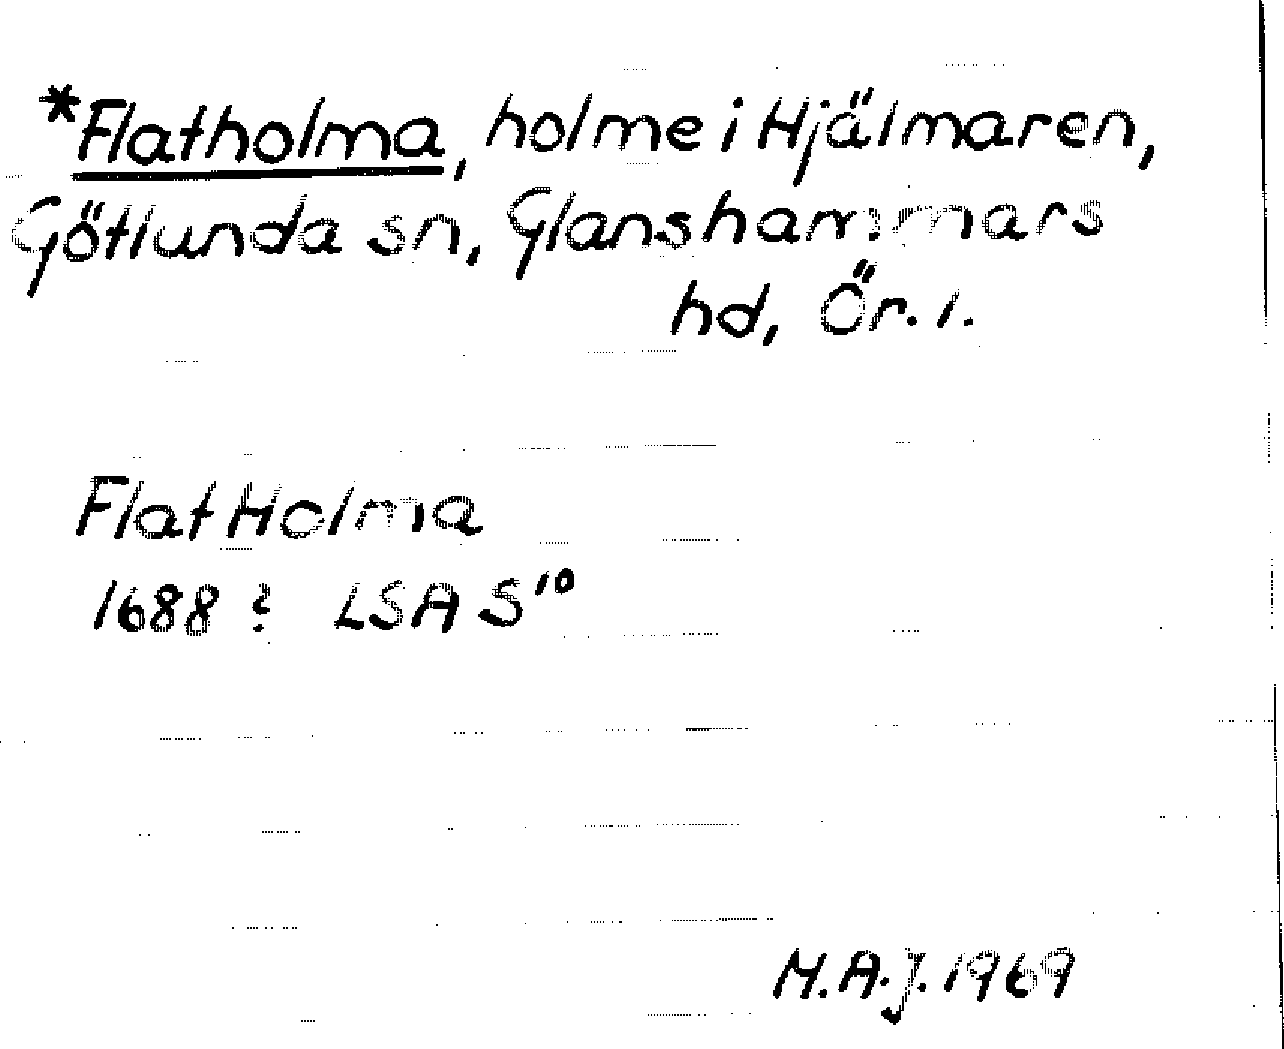 *Flatholma, holme i Hjälmaren,
Götlunda sn, Glanshammars
hd, Ör. l.
Flat Holma
1688? LSA S¹⁰
M.A.J. 1969